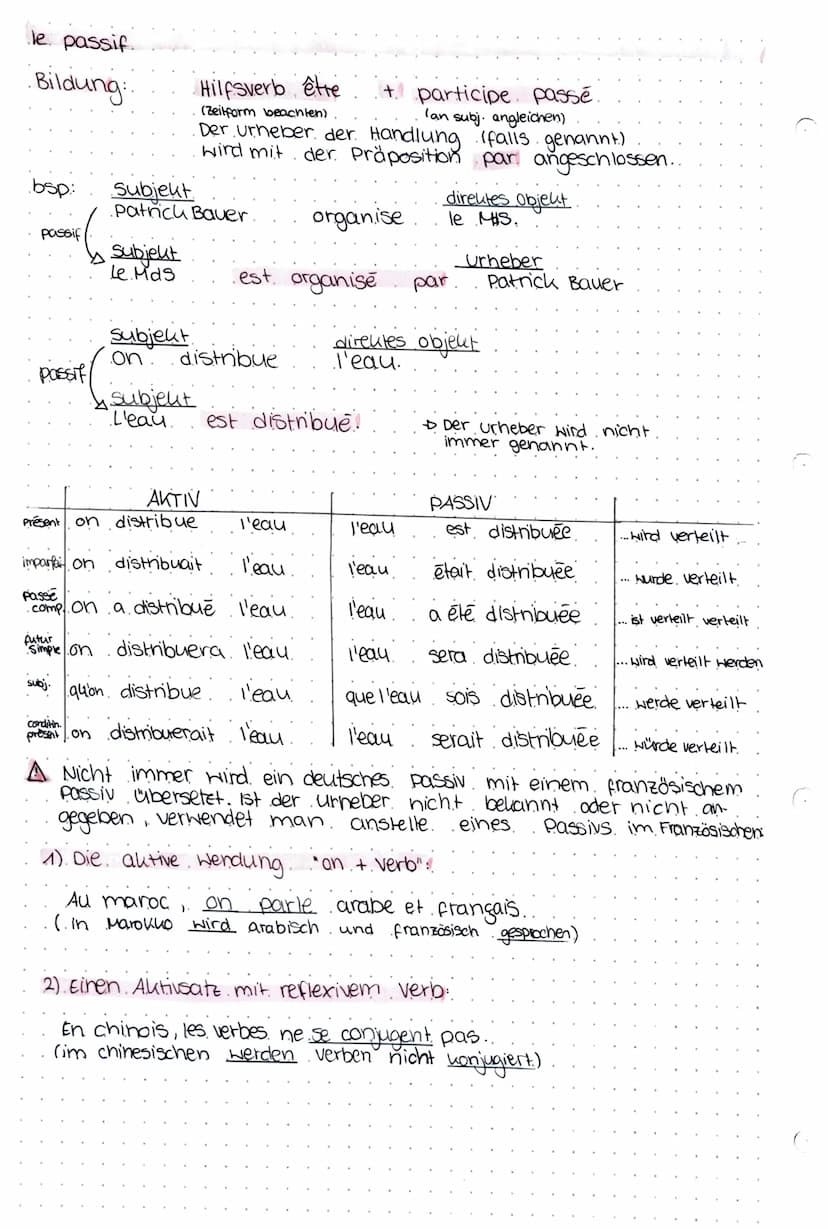 le passif.
Bildung: Hilfsverb être + participe passé
(Zeitform beachten) (an subj. angleichen)
Der Urheber der Handlung (falls genannt)
wird mit der Präposition par angeschlossen.
bsp: Subjekt direktes Objekt
Patrick Bauer organise le MdS.
passif
Subjekt Urheber
Le MdS est organisé par Patrick Bauer
Subjekt direktes Objekt
on distribue l'eau.
passif
Subjekt
L'eau est distribué! → Der Urheber wird nicht
immer genannt.
AKTIV PASSIV
Présent on distribue l'eau l'eau est distribuée ...wird verteilt
imparfait on distribuait l'eau l'eau était distribuée ... wurde verteilt
Passé comp. on a distribué l'eau l'eau a été distribuée ... ist verteilt verteilt
futur simple on distribuera l'eau l'eau sera distribuée ...wird verteilt werden
subj. qu'on distribue l'eau que l'eau sois distribuée ... werde verteilt
condition. présent on distribuerait l'eau l'eau serait distribuée ... würde verteilt
⚠ Nicht immer wird ein deutsches Passiv mit einem französischem
Passiv übersetzt. Ist der Urheber nicht bekannt oder nicht an-
gegeben, verwendet man anstelle eines Passivs im Französischen
1) Die aktive Wendung "on + verb":
Au maroc, on parle arabe et français.
(in Marokko wird arabisch und französisch gesprochen)
2) Einen Aktivsatz mit reflexivem Verb:
En chinois, les verbes ne se conjugent pas.
(im chinesischen werden verben nicht konjugiert)